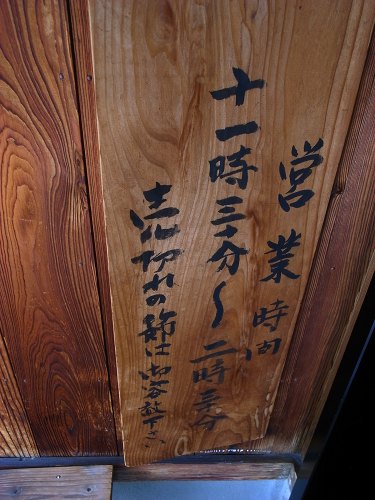 営業時間
十一時三十分～二時三十分
売切れの節は御容赦下さい